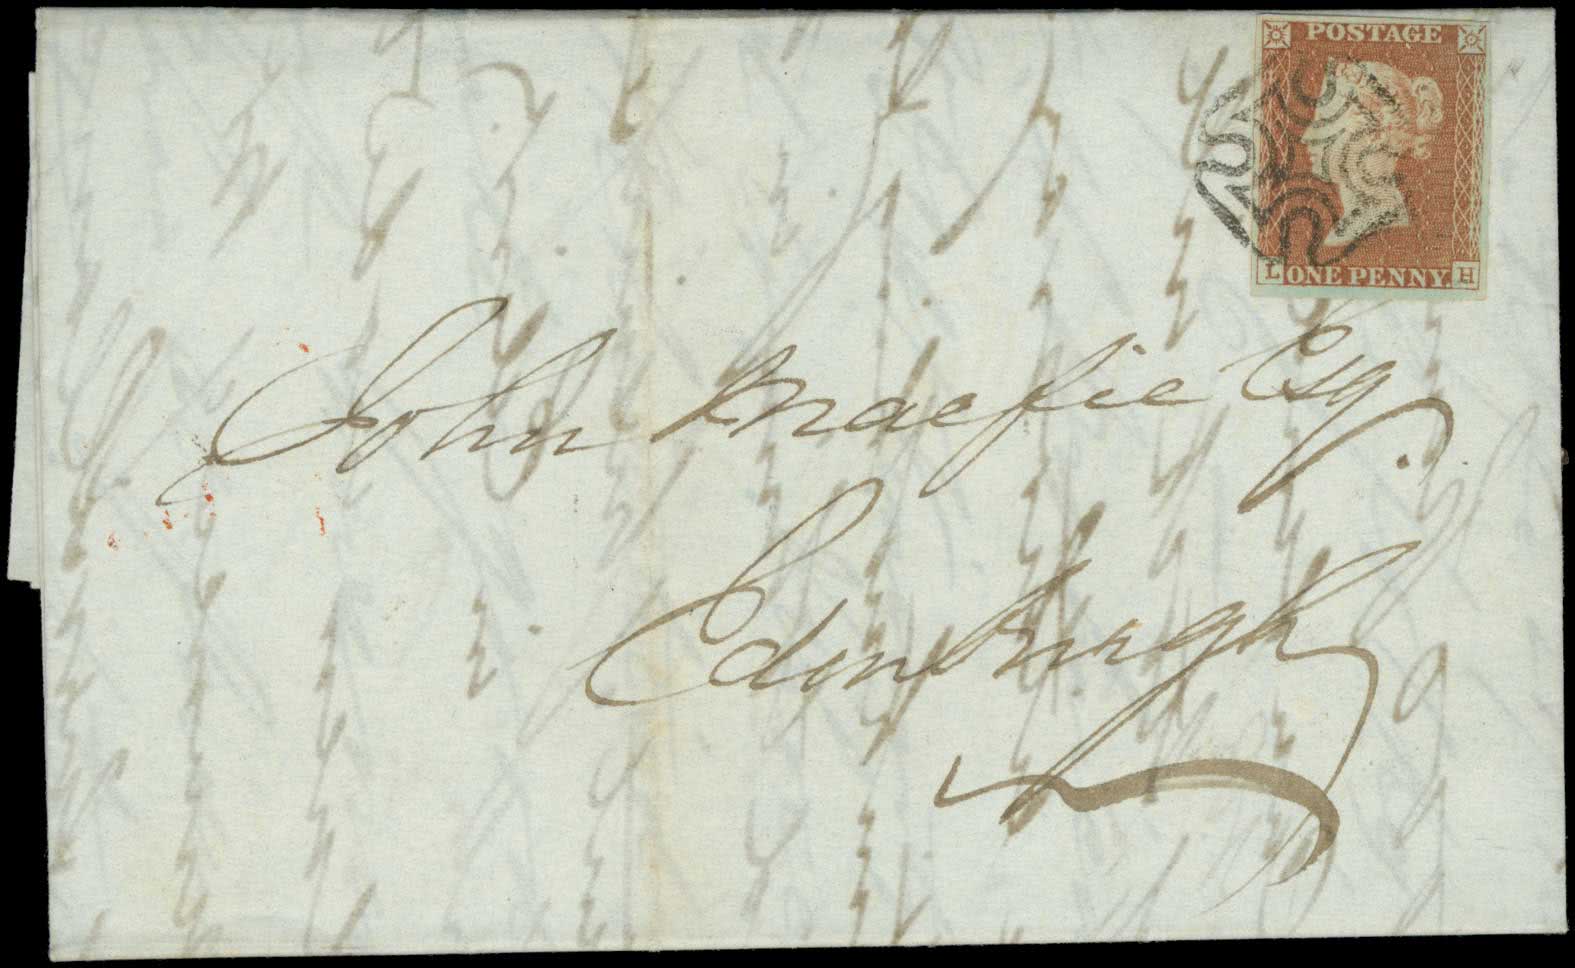 POSTAGE
L ONE PENNY. H
John Macfie Esq.
Edinburgh